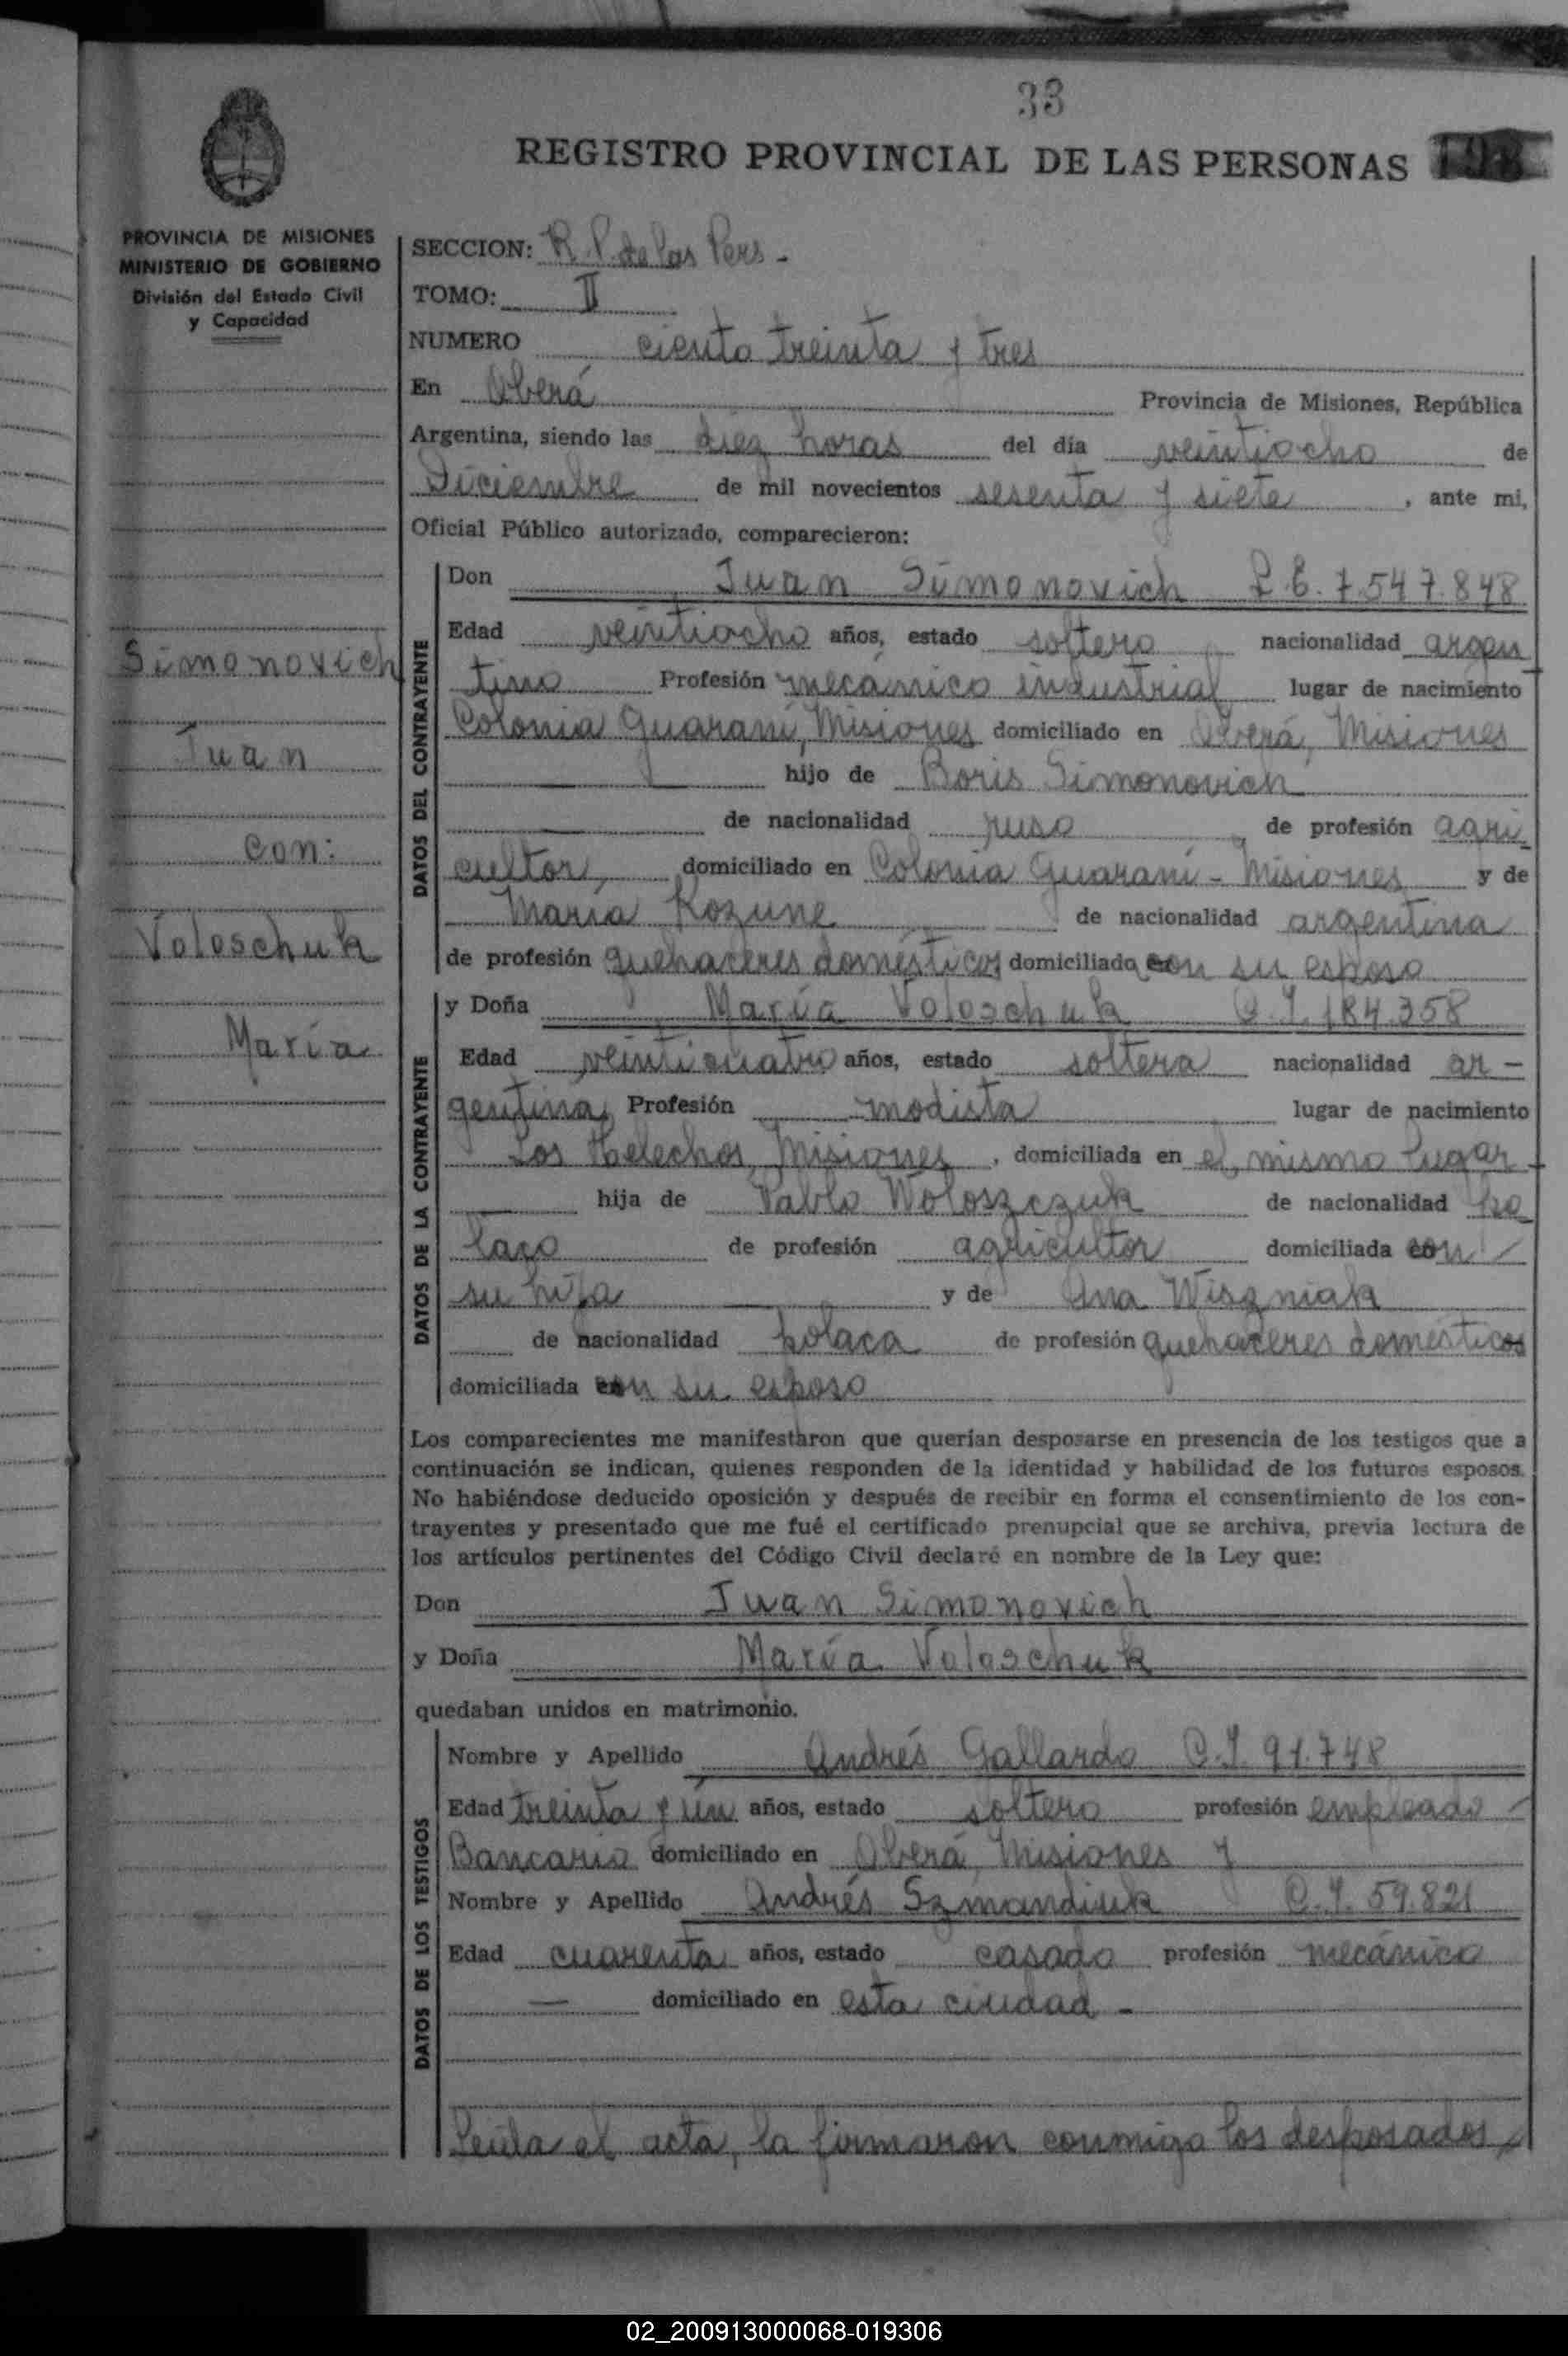 33
REGISTRO PROVINCIAL DE LAS PERSONAS
PROVINCIA DE MISIONES
MINISTERIO DE GOBIERNO
División del Estado Civil
y Capacidad
SECCION: R. P. de las Pers -
TOMO: II
NUMERO ciento treinta y tres
En Oberá Provincia de Misiones, República
Argentina, siendo las diez horas del día veintiocho de
Diciembre de mil novecientos sesenta y siete, ante mi,
Oficial Público autorizado, comparecieron:
Simonovich
Juan
con:
Voloschuk
María
DATOS DEL CONTRAYENTE
Don Juan Simonovich L.E. 7.547.848
Edad veintiocho años, estado soltero nacionalidad argen
tino Profesión mecánico industrial lugar de nacimiento
Colonia Guaraní, Misiones domiciliado en Oberá, Misiones
hijo de Boris Simonovich
de nacionalidad ruso de profesión agri
cultor, domiciliado en Colonia Guaraní - Misiones y de
María Kozune de nacionalidad argentina
de profesión quehaceres domésticos domiciliada con su esposo
DATOS DE LA CONTRAYENTE
y Doña María Voloschuk C.I. 184.358
Edad veinticuatro años, estado soltera nacionalidad ar -
gentina, Profesión modista lugar de nacimiento
Los Helechos, Misiones, domiciliada en el mismo lugar -
hija de Pablo Woloszczuk de nacionalidad po
laco de profesión agricultor domiciliada con
su hija y de Ana Wiszniak
de nacionalidad polaca de profesión quehaceres domésticos
domiciliada con su esposo
Los comparecientes me manifestaron que querían desposarse en presencia de los testigos que a
continuación se indican, quienes responden de la identidad y habilidad de los futuros esposos.
No habiéndose deducido oposición y después de recibir en forma el consentimiento de los con-
trayentes y presentado que me fué el certificado prenupcial que se archiva, previa lectura de
los artículos pertinentes del Código Civil declaré en nombre de la Ley que:
Don Juan Simonovich
y Doña María Voloschuk
quedaban unidos en matrimonio.
DATOS DE LOS TESTIGOS
Nombre y Apellido Andrés Gallardo C.I. 91.748
Edad treinta y un años, estado soltero profesión empleado -
Bancario domiciliado en Oberá, Misiones y
Nombre y Apellido Andrés Szmandiuk C.I. 59.821
Edad cuarenta años, estado casado profesión mecánico
— domiciliado en esta ciudad -
Leída el acta, la firmaron conmigo los desposados,
02_200913000068-019306